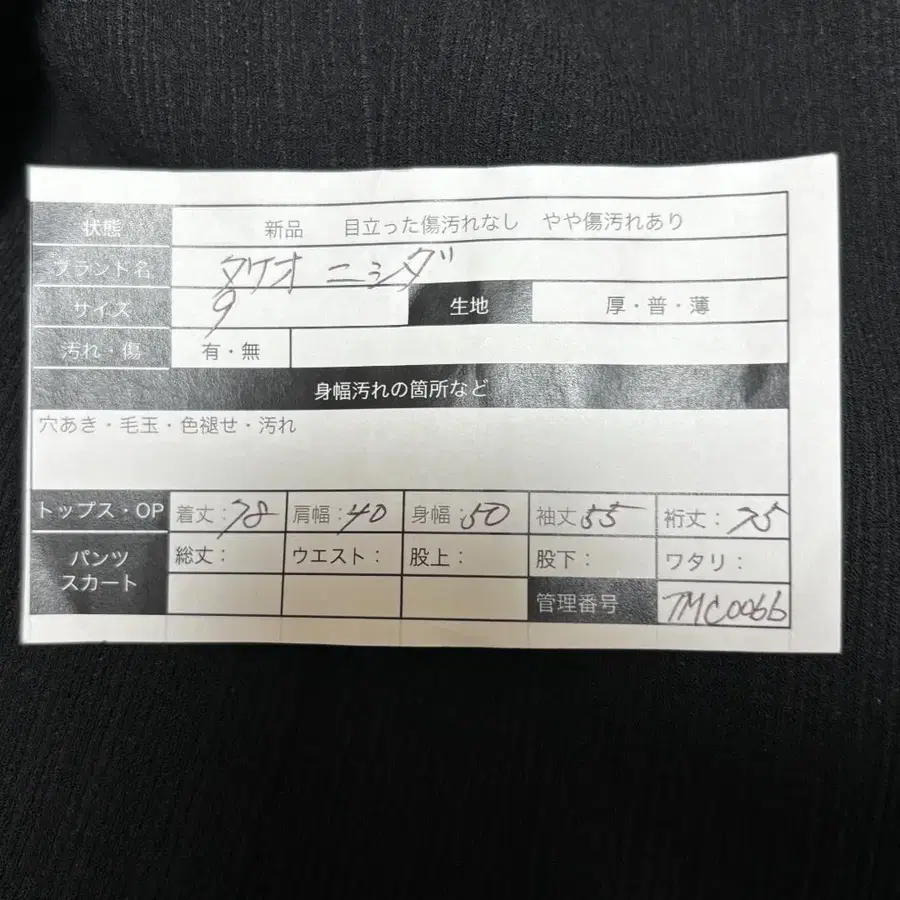 状態 新品 目立った傷汚れなし やや傷汚れあり
ブランド名 タケオ ニシダ
サイズ 9 生地 厚・普・薄
汚れ・傷 有・無
身幅汚れの箇所など
穴あき・毛玉・色褪せ・汚れ
トップス・OP 着丈:78 肩幅:40 身幅:50 袖丈55 裄丈:75
パンツ スカート 総丈: ウエスト: 股上: 股下: ワタリ:
管理番号 TMC0066